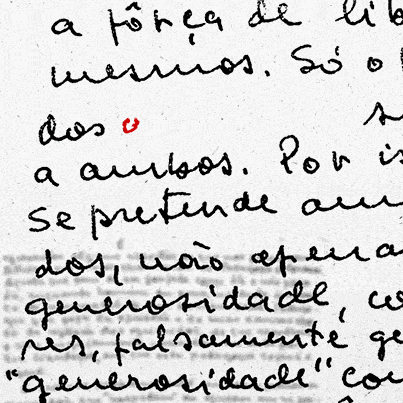 a fôrça de lib
mesmos. Só o
dos o se
a ambos. Por is
se pretende am
dos, não apena
generosidade, co
res, falsamente ge
"generosidade" con